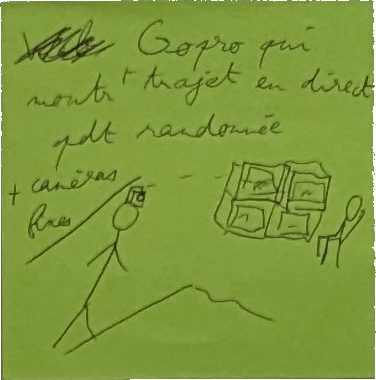 Gopro qui
montrt trajet en direct
pdt randonnée
+ caméras
fixes